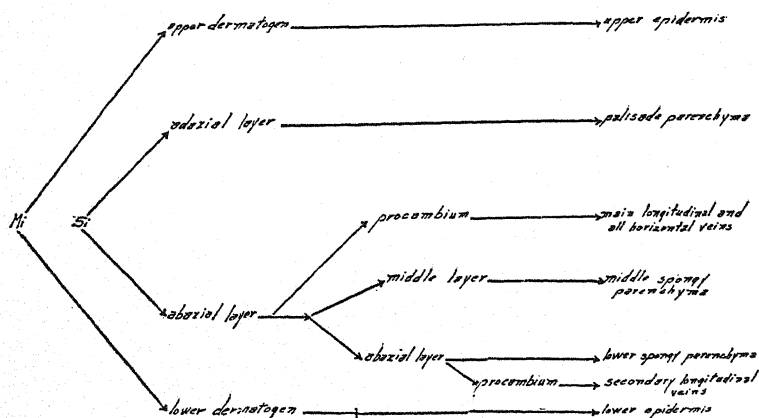 upper dermatogen upper epidermis
adaxial layer palisade parenchyma
procambium main longitudinal and
all horizontal veins
Mi Si
middle layer middle spongy
parenchyma
abaxial layer
abaxial layer lower spongy parenchyma
procambium secondary longitudinal
veins
lower dermatogen lower epidermis